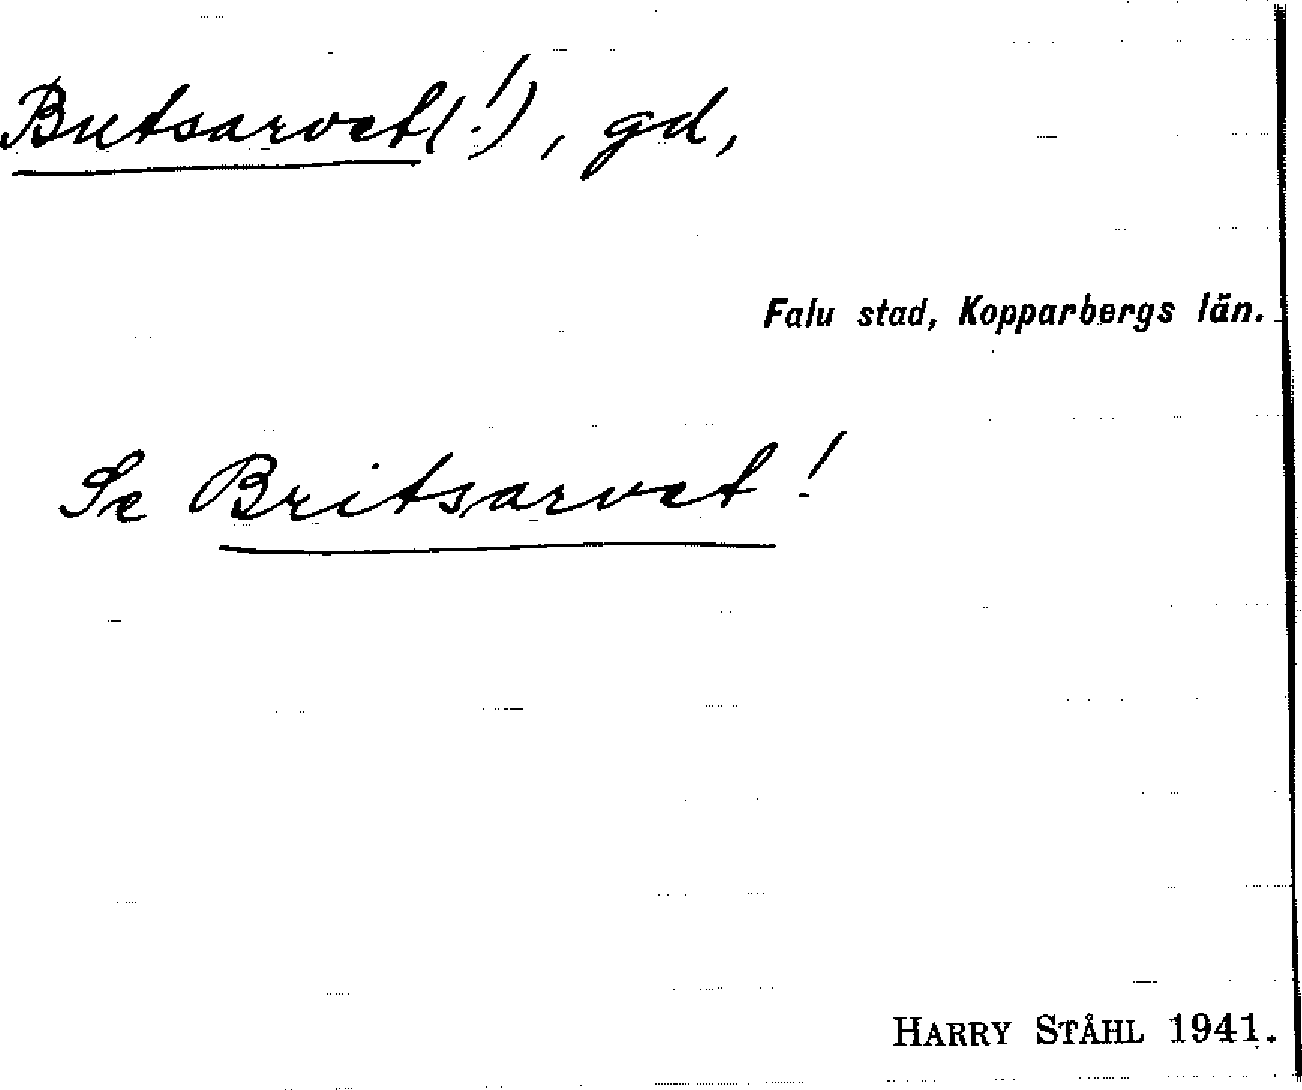 Butsarvet(!), gd,
Falu stad, Kopparbergs län.
Se Britsarvet!
HARRY STÅHL 1941.